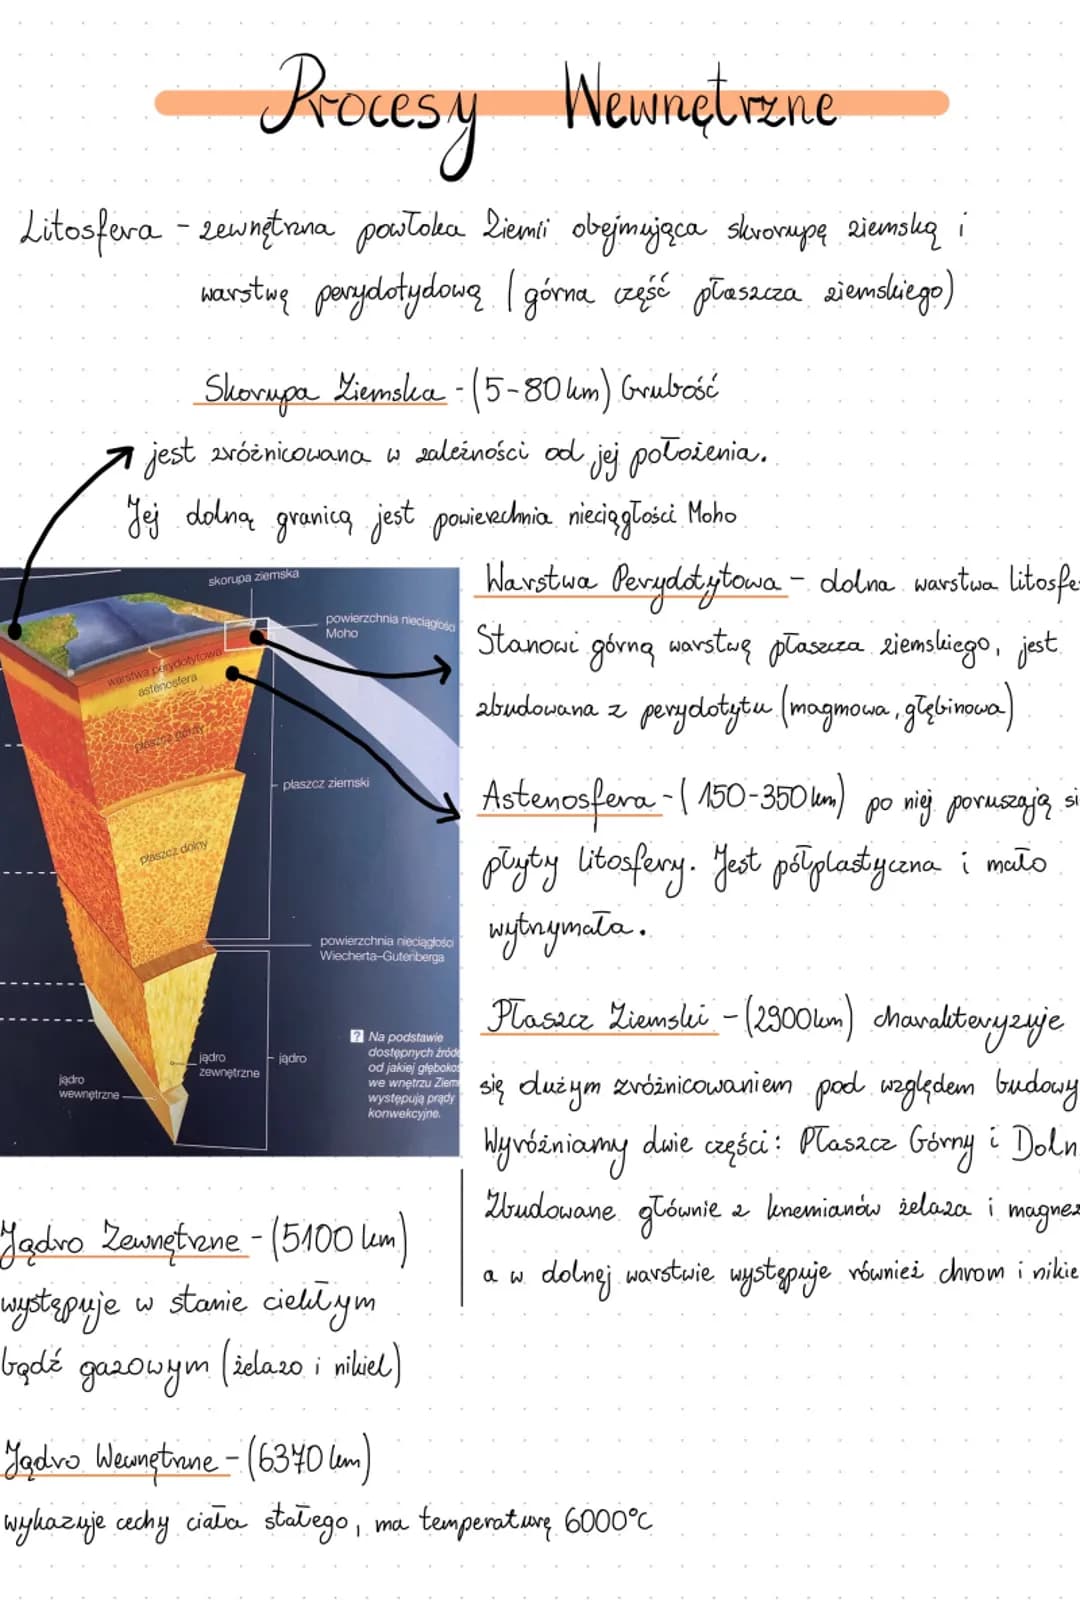 Procesy Wewnętrzne
Litosfera - zewnętrzna powłoka Ziemii obejmująca skrorupę ziemską i
warstwę perydotydową (górna część płaszcza ziemskiego)
Skorupa Ziemska - (5-80 km) Grubość
jest zróżnicowana w zależności od jej położenia.
Jej dolną granicą jest powierzchnia nieciągłości Moho
skorupa ziemska
powierzchnia nieciągłości
Moho
warstwa perydotytowa
astenosfera
płaszcz górny
płaszcz ziemski
płaszcz dolny
powierzchnia nieciągłości
Wiecherta–Gutenberga
jądro
zewnętrzne
jądro
jądro
wewnętrzne
? Na podstawie
dostępnych źróde
od jakiej głębokoś
we wnętrzu Ziem
występują prądy
konwekcyjne.
Warstwa Perydotytowa - dolna warstwa litosfe
Stanowi górną warstwę płaszcza ziemskiego, jest
zbudowana z perydotytu (magmowa, głębinowa)
Astenosfera - (150-350 km) po niej poruszają si
płyty litosfery. Jest półplastyczna i mało
wytrzymała.
Płaszcz Ziemski - (2900km) charakteryzuje
się dużym zróżnicowaniem pod względem budowy
Wyróżniamy dwie części: Płaszcz Górny i Doln
Zbudowane głównie z krzemianów żelaza i magnez
a w dolnej warstwie występuje również chrom i nikie
Jądro Zewnętrzne - (5100 km)
występuje w stanie ciekłym
bądź gazowym (żelazo i nikiel)
Jądro Wewnętrzne - (6370 km)
wykazuje cechy ciała stałego, ma temperaturę 6000°C